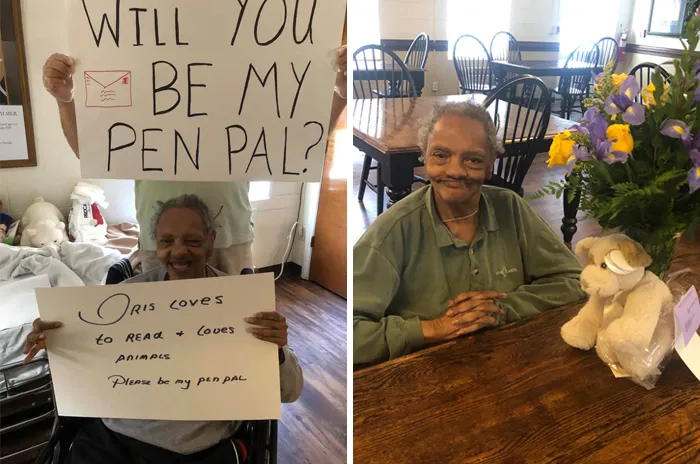 WILL YOU
BE MY
PEN PAL?
IRIS LOVES
to READ + LOVES
ANIMALS
Please be my pen pal